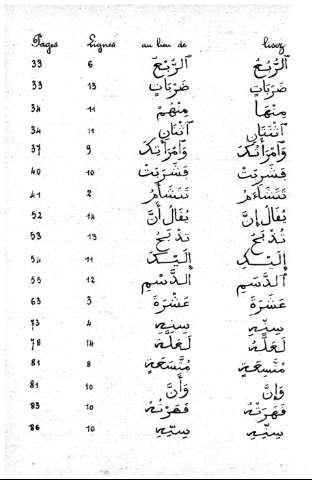 Pages Lignes au lieu de lisez
33 6 اَلرَّبْعُ اَلرُّبُعُ
33 13 ضَرْبَاتٍ ضَرَبَاتٍ
34 11 مِنْهُمْ مِنْهَا
34 11 اَثْنَانِ اَثْنَتَانِ
37 9 وَٱمْرَأَتِكَ وَٱمْرَأَتُكَ
40 10 فَشَرِبْتَ فَشَرِبَتْ
41 2 تَتَشَأَّمُ تَتَشَاءَمُ
52 14 يُقَالُ أَنَّ يُقَالُ إِنَّ
53 13 تَذْبَحُ تُذْبَحُ
54 11 إِلَيْكَ إِلَيْكِ
55 12 اَلدَّسْمِ اَلدَّسَمِ
63 3 عَشْرَةَ عَشَرَةَ
73 4 سِنِهِ سِنِّهِ
78 14 لَعَلَّهْ لَعَلَّهُ
81 8 مُتَّسَعَةٍ مُتَّسِعَةٍ
81 10 وَأَنَّ وَإِنَّ
83 10 فَهَرْتُهُ فَهَرَتْهُ
86 10 سِنِهِ سِنِّهِ